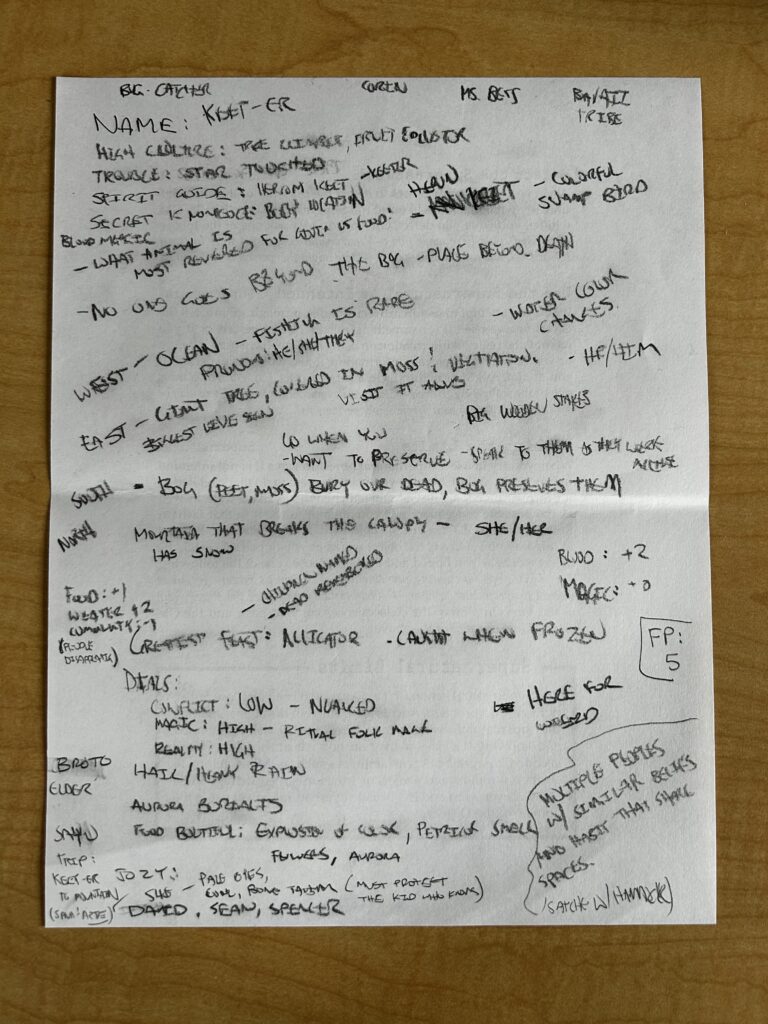 BUG-CATCHER COREN MS. BETS BA/AII
TRIBE
NAME: KEET-ER
HIGH CULTURE: TREE CLIMBER, FRUIT COLLECTOR
TROUBLE: STAR TOUCHED
SPIRIT GUIDE: HERON KEET -KEETER
SECRET KNOWLEDGE: BODY LOCATION
BLOOD MAGIC
- WHAT ANIMAL IS
MOST REVERED FOR GIVIN US FOOD: = HERN - COLORFUL
SWAMP BIRD
- NO ONE GOES BEYOND THE BOG - PLACE BEYOND DEATH
WEST - OCEAN - FISHING IS RARE - WATER COLOR
CHANGES.
PRONOUNS: HE/SHE/THEY
EAST - GIANT TREE, COVERED IN MOSS & VEGITATION. - HE/HIM
BIGGEST WE'VE SEEN VISIT IT
BIG WOODEN STAKES
GO WHEN YOU
- WANT TO PRESERVE - SPEAK TO THEM AS THEY WERE
SOUTH = BOG (PEET, MOSS) BURY OUR DEAD, BOG PRESERVES THEM
NORTH MOUNTAIN THAT BREAKS THE CANOPY - SHE/HER
HAS SNOW
BLOOD: +2
MAGIC: +0
FOOD: +1
WEATHER +2
COMMUNITY: -1
(PEOPLE
DISAPPEAR)
- CHILDREN NAMED
- DEAD REMEMBERED
GREATEST FEAST: ALLIGATOR - CAUGHT WHEN FROZEN
FP:
5
DIALS:
CONFLICT: LOW - NUANCED
MAGIC: HIGH - RITUAL FOLK MAGIC
REALITY: HIGH
- HERE FOR
WEIRD
BROTO HAIL/HEAVY RAIN
ELDER
AURORA BOREALIS
FOOD BOUTIFUL: EXPLOSION OF COLOR, PETRICHOR SMELL
FLOWERS, AURORA
TRIP:
KEET-ER
TO MOUNTAIN
JOZY:
SHE - PALE EYES,
BONE TALISM (MUST PROTECT
THE KID WHO KNOWS)
DAVID, SEAN, SPENCER
MULTIPLE PEOPLES
W/ SIMILAR BELIEFS
AND HABIT THAT SHARE
SPACES.